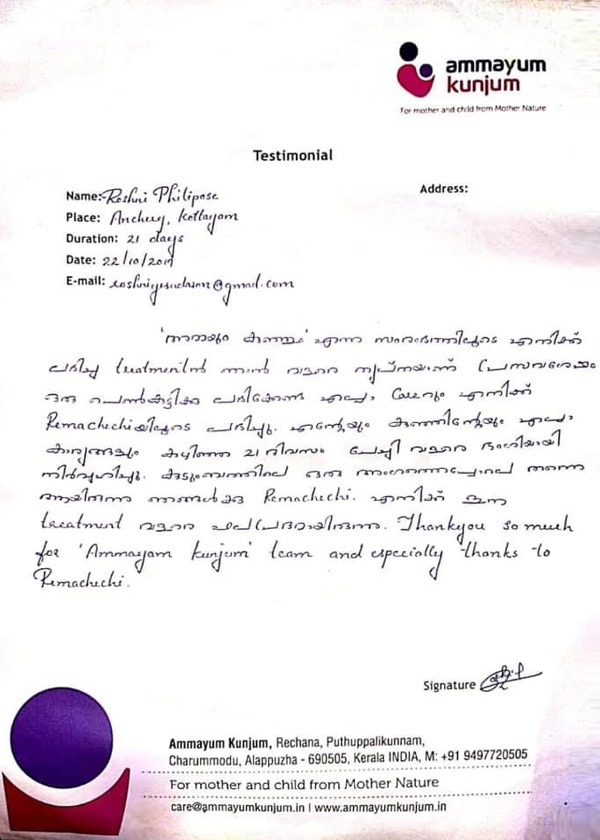 ammayum
kunjum
For mother and child from Mother Nature
Testimonial
Name: Roshni Philipose
Address:
Place: Anchery, Kottayam
Duration: 21 days
Date: 22/10/2017
E-mail: @gmail.com
'അമ്മയും കുഞ്ഞും' എന്ന സംരംഭത്തിലൂടെ എനിക്ക്
ലഭിച്ച treatmentൽ ഞാൻ വളരെ തൃപ്തയാണ്. പ്രസവശേഷം
ഒരു പെൺകുട്ടിക്കു ലഭിക്കേണ്ട എല്ലാ careഉം എനിക്ക്
Remachechiയിലൂടെ ലഭിച്ചു. എന്റെയും കുഞ്ഞിന്റെയും എല്ലാ
കാര്യങ്ങളും കഴിഞ്ഞ 21 ദിവസം ചേച്ചി വളരെ ഭംഗിയായി
നിർവ്വഹിച്ചു. കുടുംബത്തിലെ ഒരു അംഗത്തെപ്പോലെ തന്നെ
ആയിരുന്നു ഞങ്ങൾക്കു Remachechi. എനിക്ക് ഈ
treatment വളരെ ഫലപ്രദമായിരുന്നു. Thankyou so much
for 'Ammayum kunjum' team and especially thanks to
Remachechi.
Signature
Ammayum Kunjum, Rechana, Puthuppalikunnam,
Charummodu, Alappuzha - 690505, Kerala INDIA, M: +91 9497720505
For mother and child from Mother Nature
care@ammayumkunjum.in | www.ammayumkunjum.in